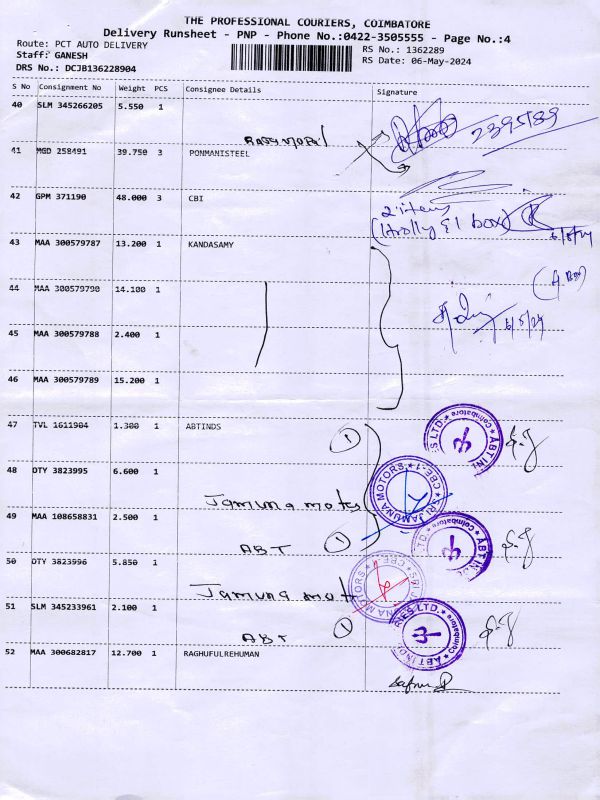 THE PROFESSIONAL COURIERS, COIMBATORE
Delivery Runsheet - PNP - Phone No.:0422-3505555 - Page No.:4
Route: PCT AUTO DELIVERY RS No.: 1362289
Staff: GANESH RS Date: 06-May-2024
DRS No.: DCJB136228904
S No Consignment No Weight PCS Consignee Details Signature
40 SLM 345266205 5.550 1
2395189
41 MGD 258491 39.750 3 PONMANISTEEL
42 GPM 371190 48.000 3 CBI
2 items
(1 trolly & 1 box)
6/5/24
43 MAA 300579787 13.200 1 KANDASAMY
44 MAA 300579790 14.100 1
6/5/24
45 MAA 300579788 2.400 1
46 MAA 300579789 15.200 1
47 TVL 1611904 1.300 1 ABTINDS
1
48 OTY 3823995 6.600 1
Jamuna motrs
49 MAA 108658831 2.500 1
ABT 1
50 OTY 3823996 5.850 1
Jamuna mot
51 SLM 345233961 2.100 1
ABT 1
52 MAA 300682817 12.700 1 RAGHUFULREHUMAN
SRI JAMUNA MOTORS * CBE-1 *
ABT INDUSTRIES LTD. * Coimbatore *